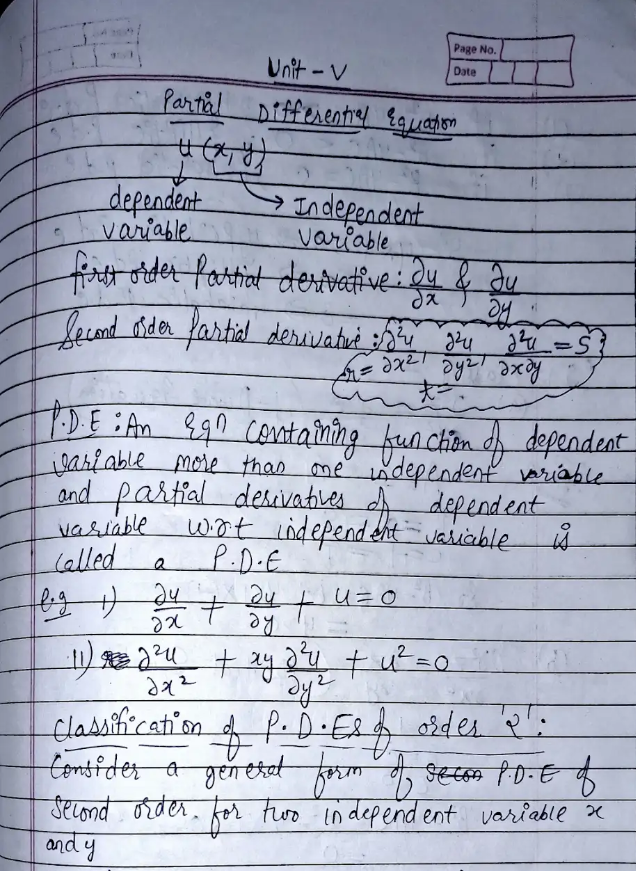 Page No.
Date
Unit - V
Partial Differential Equation
u (x, y)
dependent variable
Independent variable
first order Partial derivative : ∂u/∂x & ∂u/∂y
Second order Partial derivative : r = ∂²u/∂x², t = ∂²u/∂y², ∂²u/∂x∂y = S
P.D.E : An Eqn containing function of dependent
variable more than one independent variable
and partial derivatives of dependent
variable w.r.t independent variable is
called a P.D.E
e.g i) ∂u/∂x + ∂u/∂y + u = 0
ii) ∂²u/∂x² + xy ∂²u/∂y² + u² = 0
Classification of P.D.Es of order '2' :
Consider a general form of secon P.D.E of
second order for two independent variable x
and y